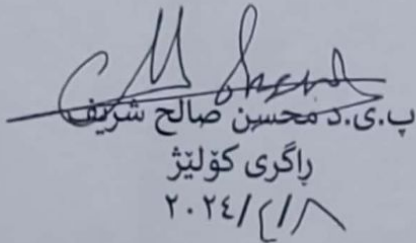 پ.ی.د محسن صالح شریف
ڕاگری کۆلێژ
٢٠٢٤/٤/٨